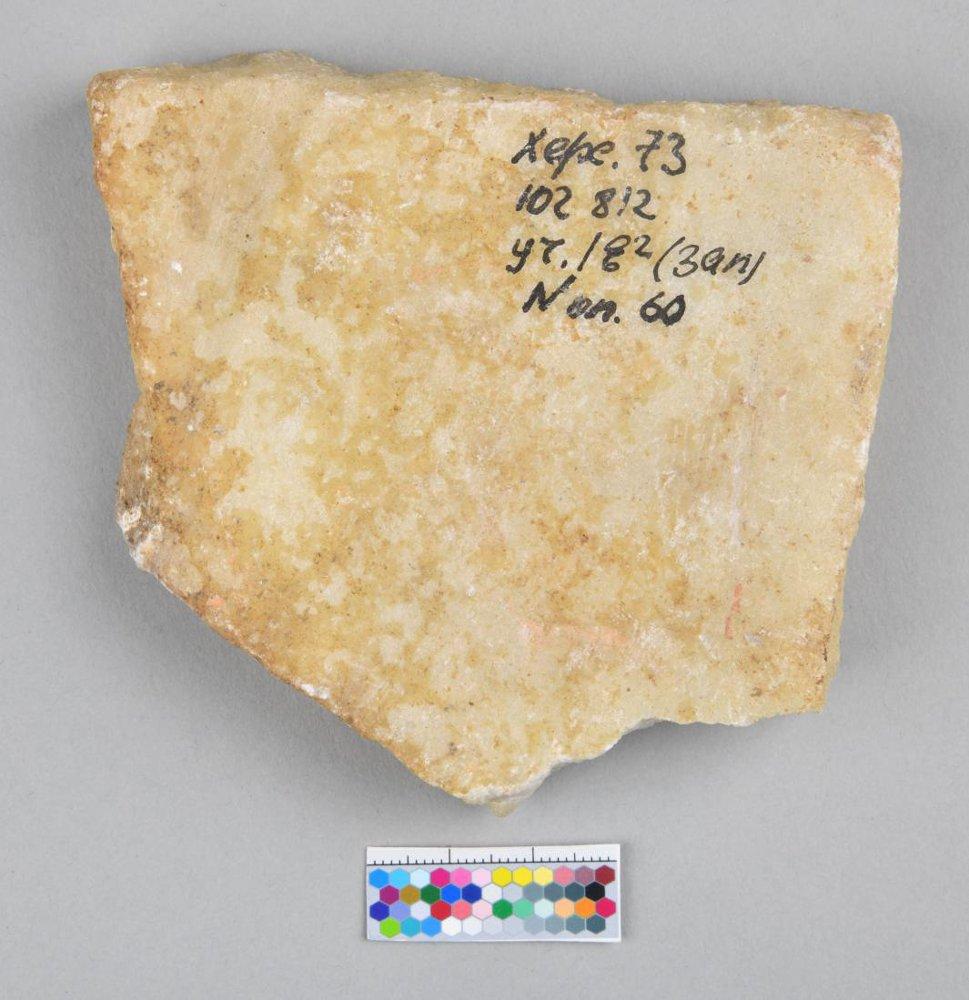 Херс. 73
102 812
уч. 1 g² (зап)
N оп. 60